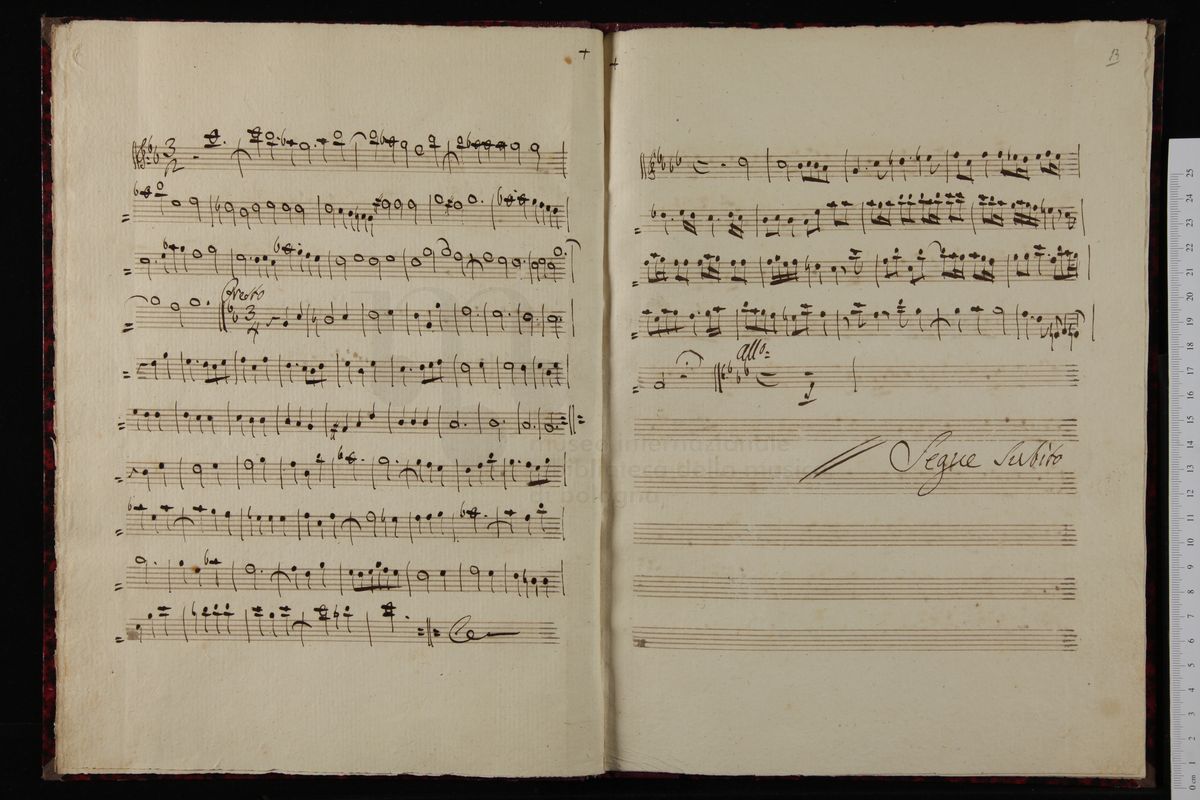 3
2
Presto
3
4
13
allo:
Segue Subito
museo internazionale
e biblioteca della musica
di bologna
25
24
23
22
21
20
19
18
17
16
15
14
13
12
11
10
9
8
7
6
5
4
3
2
1
0 cm